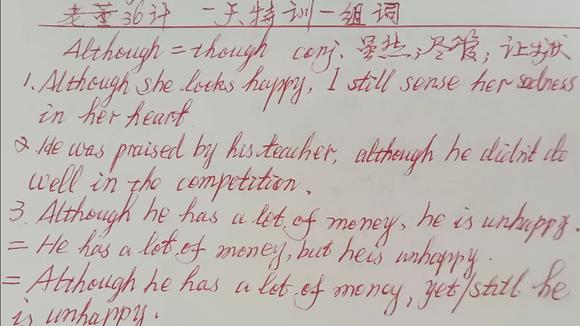 老董36计 一天特训一组词
Although = though conj. 虽然；尽管；让步状
1. Although she looks happy, I still sense her sadness
in her heart
2. He was praised by his teacher, although he didn't do
well in the competition.
3. Although he has a lot of money, he is unhappy.
= He has a lot of money, but he is unhappy.
= Although he has a lot of money, yet/still he
is unhappy.